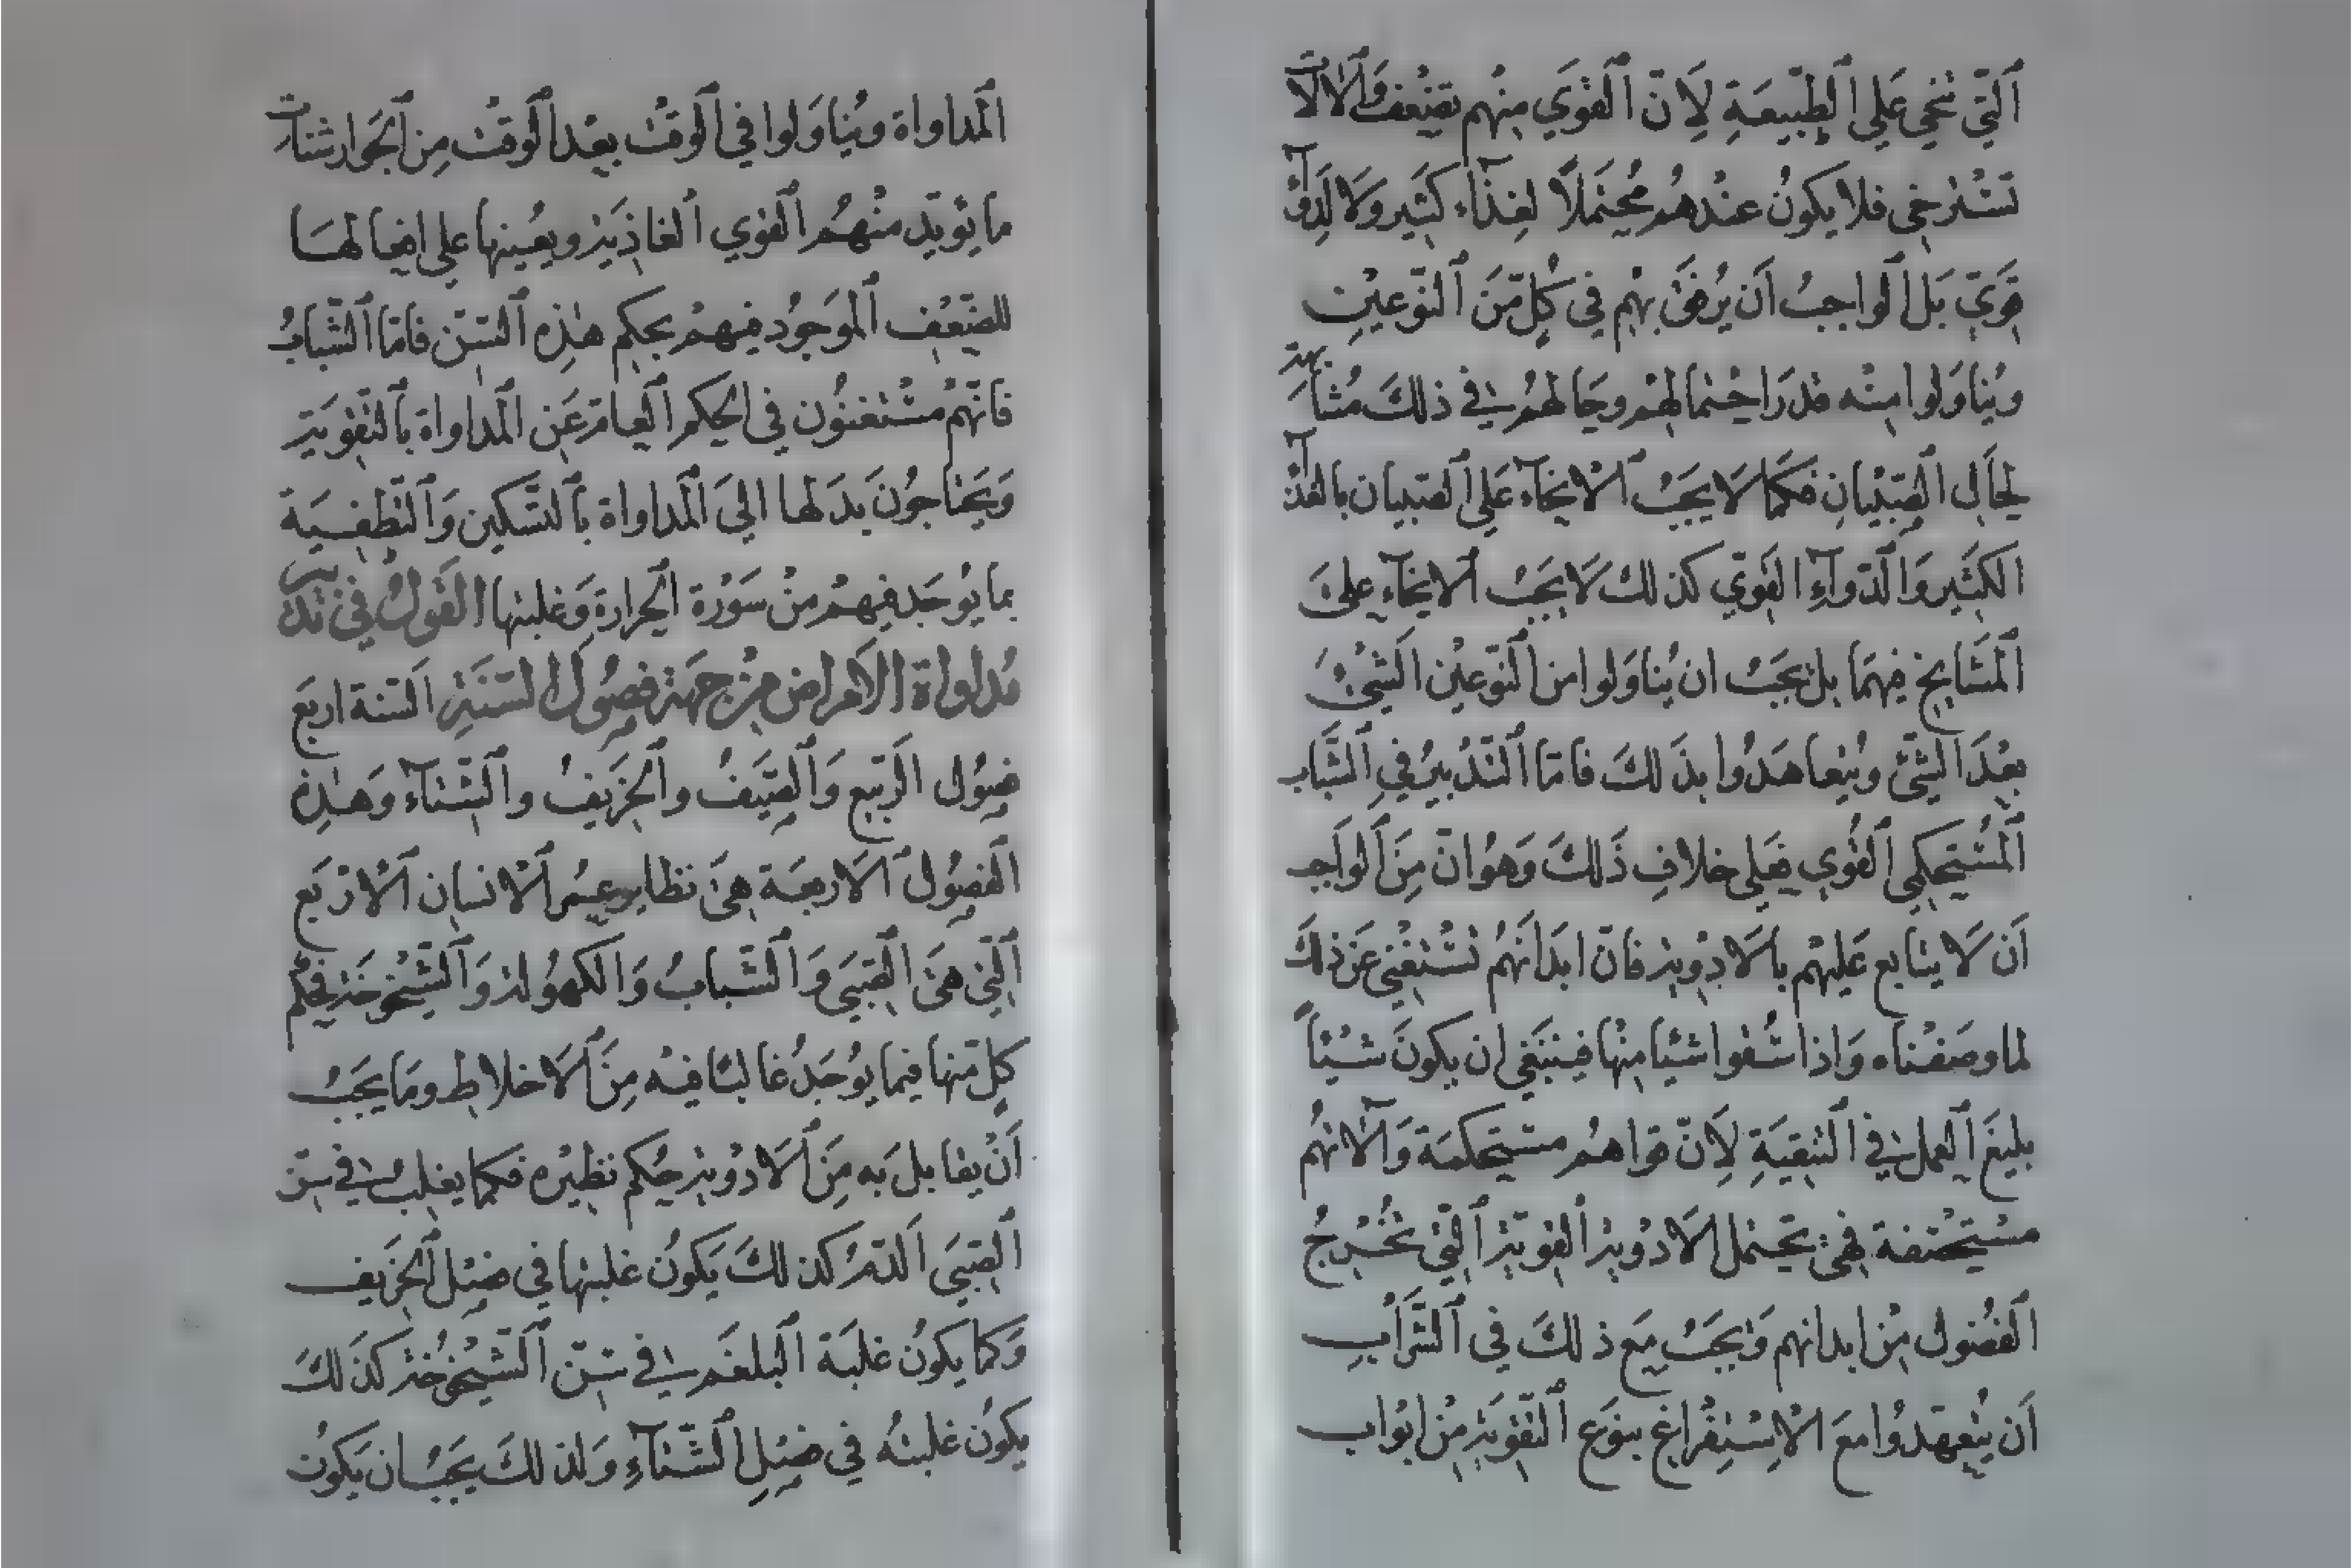 الَّتي تنحي علي الطّبيعَةِ لِأنّ القوَي مِنهم تضعف والآلآت
تسْترخي فلا يكونُ عندهُم مُحتملًا لغِذآء كثير ولا لدوآءٍ
قويّ بَل الواجبُ أن يُرفق بهم في كلّ مّن النّوعين
ويُناولوا منه قدر احتمالهم وحَالهم في ذلك مُشابهة
لحَال الصّبْيان فكما لا يجبُ الانحآء علي الصبيان بالغذآء
الكثير والدّوآء القوَيّ كذلك لا يجبُ الانحآء علىَ
المشَايخ فيهما بل يجَبُ ان يُناوَلوا من النّوعيْن الشّئ
بعْدَ الشّئ ويُتعاهَدُوا بذَلكَ فامّا التّدبيرُ في الشّباب
المُسْتحكمي القُوي فعلي خلافِ ذَلكَ وَهوَ انّ مِنَ الواجب
أن لا يتابع عَليهْم بالادْويةِ فانّ ابدَانَهُم تسْتغْني عَن ذلكَ
لما وصَفْناه وَاذا سُقوا شيْئا مِنْها فينبَغي ان يكونَ شيْئاً
بليغَ العمل في التّنقيَةِ لِأنّ قواهُم مستحكمَة وَآلاتهُم
مسْتحصَفة فهيَ تحتمل الادْويةَ القويّةَ الّتي تُخْرجُ
الفضُول مِن ابدانهم وَيجَبُ مَع ذلكَ في الشَّراب
أن يُتعهّدُوا معَ الاِسْتِفْراغ بنوَع التّقوية مِنْ ابْواب
المُداواة ويُناوَلوا في الوَقْت بعْد الوَقْت مِن الجَوارشنات
ما يؤيّد منْهُم القوي الغاذية ويعُينها علي افعالها
للضّعْف الموَجوُد فيهمْ بحكم هذه السّن فامّا الشّبابُ
فانّهم مسْتغنوُن في الحكم العامّ عَن المداواة بالتّقوية
وَيحَتاجوُنَ بدَلها اليَ المداواة بالتّسكين والتّطفيَة
بما يوُجَد فيهمْ منْ سَوْرة الحرارة وَغلبتها القَولُ في تدبير
مُداواة الامراض مِن جهة فصُول السّنَةِ السّنة اربَع
فصُول الرّبيع وَالصّيَف والخرَيف والشّتآء وَهذه
الفصُول الاربعَة هيَ نظاير عمر الانسان الارْبَع
الّتي هيَ الصّبَي وَالشّبابُ وَالكهوُلة وَالشّيْخوخَة فحكم
كلّ مّنها فيما يوُجَدُ غالبًا فيه مِنَ الاخلاط ومَا يجَبُ
أنْ يقابلَ به مِنَ الادْوية حُكم نظيره فكما يغلبُ في سِنّ
الصّبَي الدّمُ كذلكَ يَكوُن غلبتها في فصْل الخرَيف
وَكما يكوُن غلبَة البلغَم في سِنّ الشّيْخوُخة كذَلكَ
يكوُن غلبتُه في فصْلِ الشّتآءِ وَلذلكَ يجَبُ ان يَكوُن